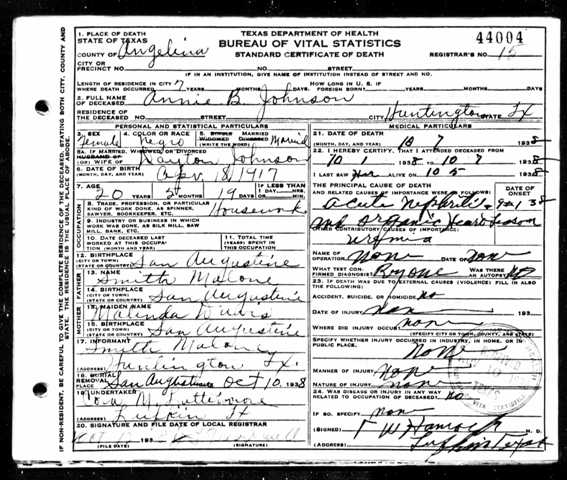 1. PLACE OF DEATH
STATE OF TEXAS
COUNTY OF Angelina
CITY OR PRECINCT NO. NO. STREET
TEXAS DEPARTMENT OF HEALTH
BUREAU OF VITAL STATISTICS
STANDARD CERTIFICATE OF DEATH
44004
REGISTRAR'S NO. 15
IF IN AN INSTITUTION, GIVE NAME OF INSTITUTION INSTEAD OF STREET AND NO.
LENGTH OF RESIDENCE IN CITY WHERE DEATH OCCURRED YEARS MONTHS DAYS
HOW LONG IN U. S. IF FOREIGN BORN? YEARS MONTHS DAYS
2. FULL NAME OF DECEASED Annie B. Johnson
RESIDENCE OF THE DECEASED STREET NO. CITY Huntington Tx
PERSONAL AND STATISTICAL PARTICULARS
3. SEX Female
4. COLOR OR RACE Negro
5. SINGLE MARRIED WIDOWED DIVORCED (WRITE THE WORD) Married
5A. IF MARRIED, WIDOWED, OR DIVORCED
HUSBAND OF
(OR) WIFE OF Dayton Johnson
6. DATE OF BIRTH (MONTH, DAY, AND YEAR) Apr 18 1917
7. AGE 20 YEARS 5 MONTHS 19 DAYS
IF LESS THAN 1 DAY HOURS MIN.
OCCUPATION
8. TRADE, PROFESSION, OR PARTICULAR KIND OF WORK DONE, AS SPINNER, SAWYER, BOOKKEEPER, ETC. Housework
9. INDUSTRY OR BUSINESS IN WHICH WORK WAS DONE, AS SILK MILL, SAW MILL, BANK, ETC.
10. DATE DECEASED LAST WORKED AT THIS OCCUPATION
11. TOTAL TIME (YEARS) SPENT IN THIS OCCUPATION
12. BIRTHPLACE (CITY OR TOWN) (STATE OR COUNTRY) San Augustine
FATHER
13. NAME Smith Malone
14. BIRTHPLACE (CITY OR TOWN) (STATE OR COUNTRY) San Augustine
MOTHER
15. MAIDEN NAME Malinda
16. BIRTHPLACE (CITY OR TOWN) (STATE OR COUNTRY) San Augustine
17. INFORMANT Smith Malone
(ADDRESS) Huntington Tx.
18. BURIAL REMOVAL
PLACE San Augustine DATE Oct 10, 1938
19. UNDERTAKER
(ADDRESS) Lufkin Tx
20. SIGNATURE AND FILE DATE OF LOCAL REGISTRAR
(FILE DATE) (SIGNATURE)
MEDICAL PARTICULARS
21. DATE OF DEATH (MONTH, DAY, AND YEAR) 10 7 1938
22. I HEREBY CERTIFY, THAT I ATTENDED DECEASED FROM
10 1938 TO 10 7 1938
I LAST SAW Her ALIVE ON 10 5 1938
THE PRINCIPAL CAUSE OF DEATH AND RELATED CAUSES OF IMPORTANCE WERE AS FOLLOWS:
DATE OF ONSET
acute Nephritis 9-21 38
and organic Heart lesson
OTHER CONTRIBUTORY CAUSES OF IMPORTANCE:
NAME OF OPERATION None DATE OF None
WHAT TEST CONFIRMED DIAGNOSIS? WAS THERE AN AUTOPSY? No
23. IF DEATH WAS DUE TO EXTERNAL CAUSES (VIOLENCE) FILL IN ALSO THE FOLLOWING:
ACCIDENT, SUICIDE, OR HOMICIDE? No
DATE OF INJURY non 193
WHERE DID INJURY OCCUR? non
(SPECIFY CITY OR TOWN, COUNTY, AND STATE)
SPECIFY WHETHER INJURY OCCURRED IN INDUSTRY, IN HOME, OR IN PUBLIC PLACE.
None
MANNER OF INJURY None
NATURE OF INJURY none
24. WAS DISEASE OR INJURY IN ANY WAY RELATED TO OCCUPATION OF DECEASED? no
IF SO, SPECIFY non
(SIGNED) M. D.
(ADDRESS) Lufkin Texas